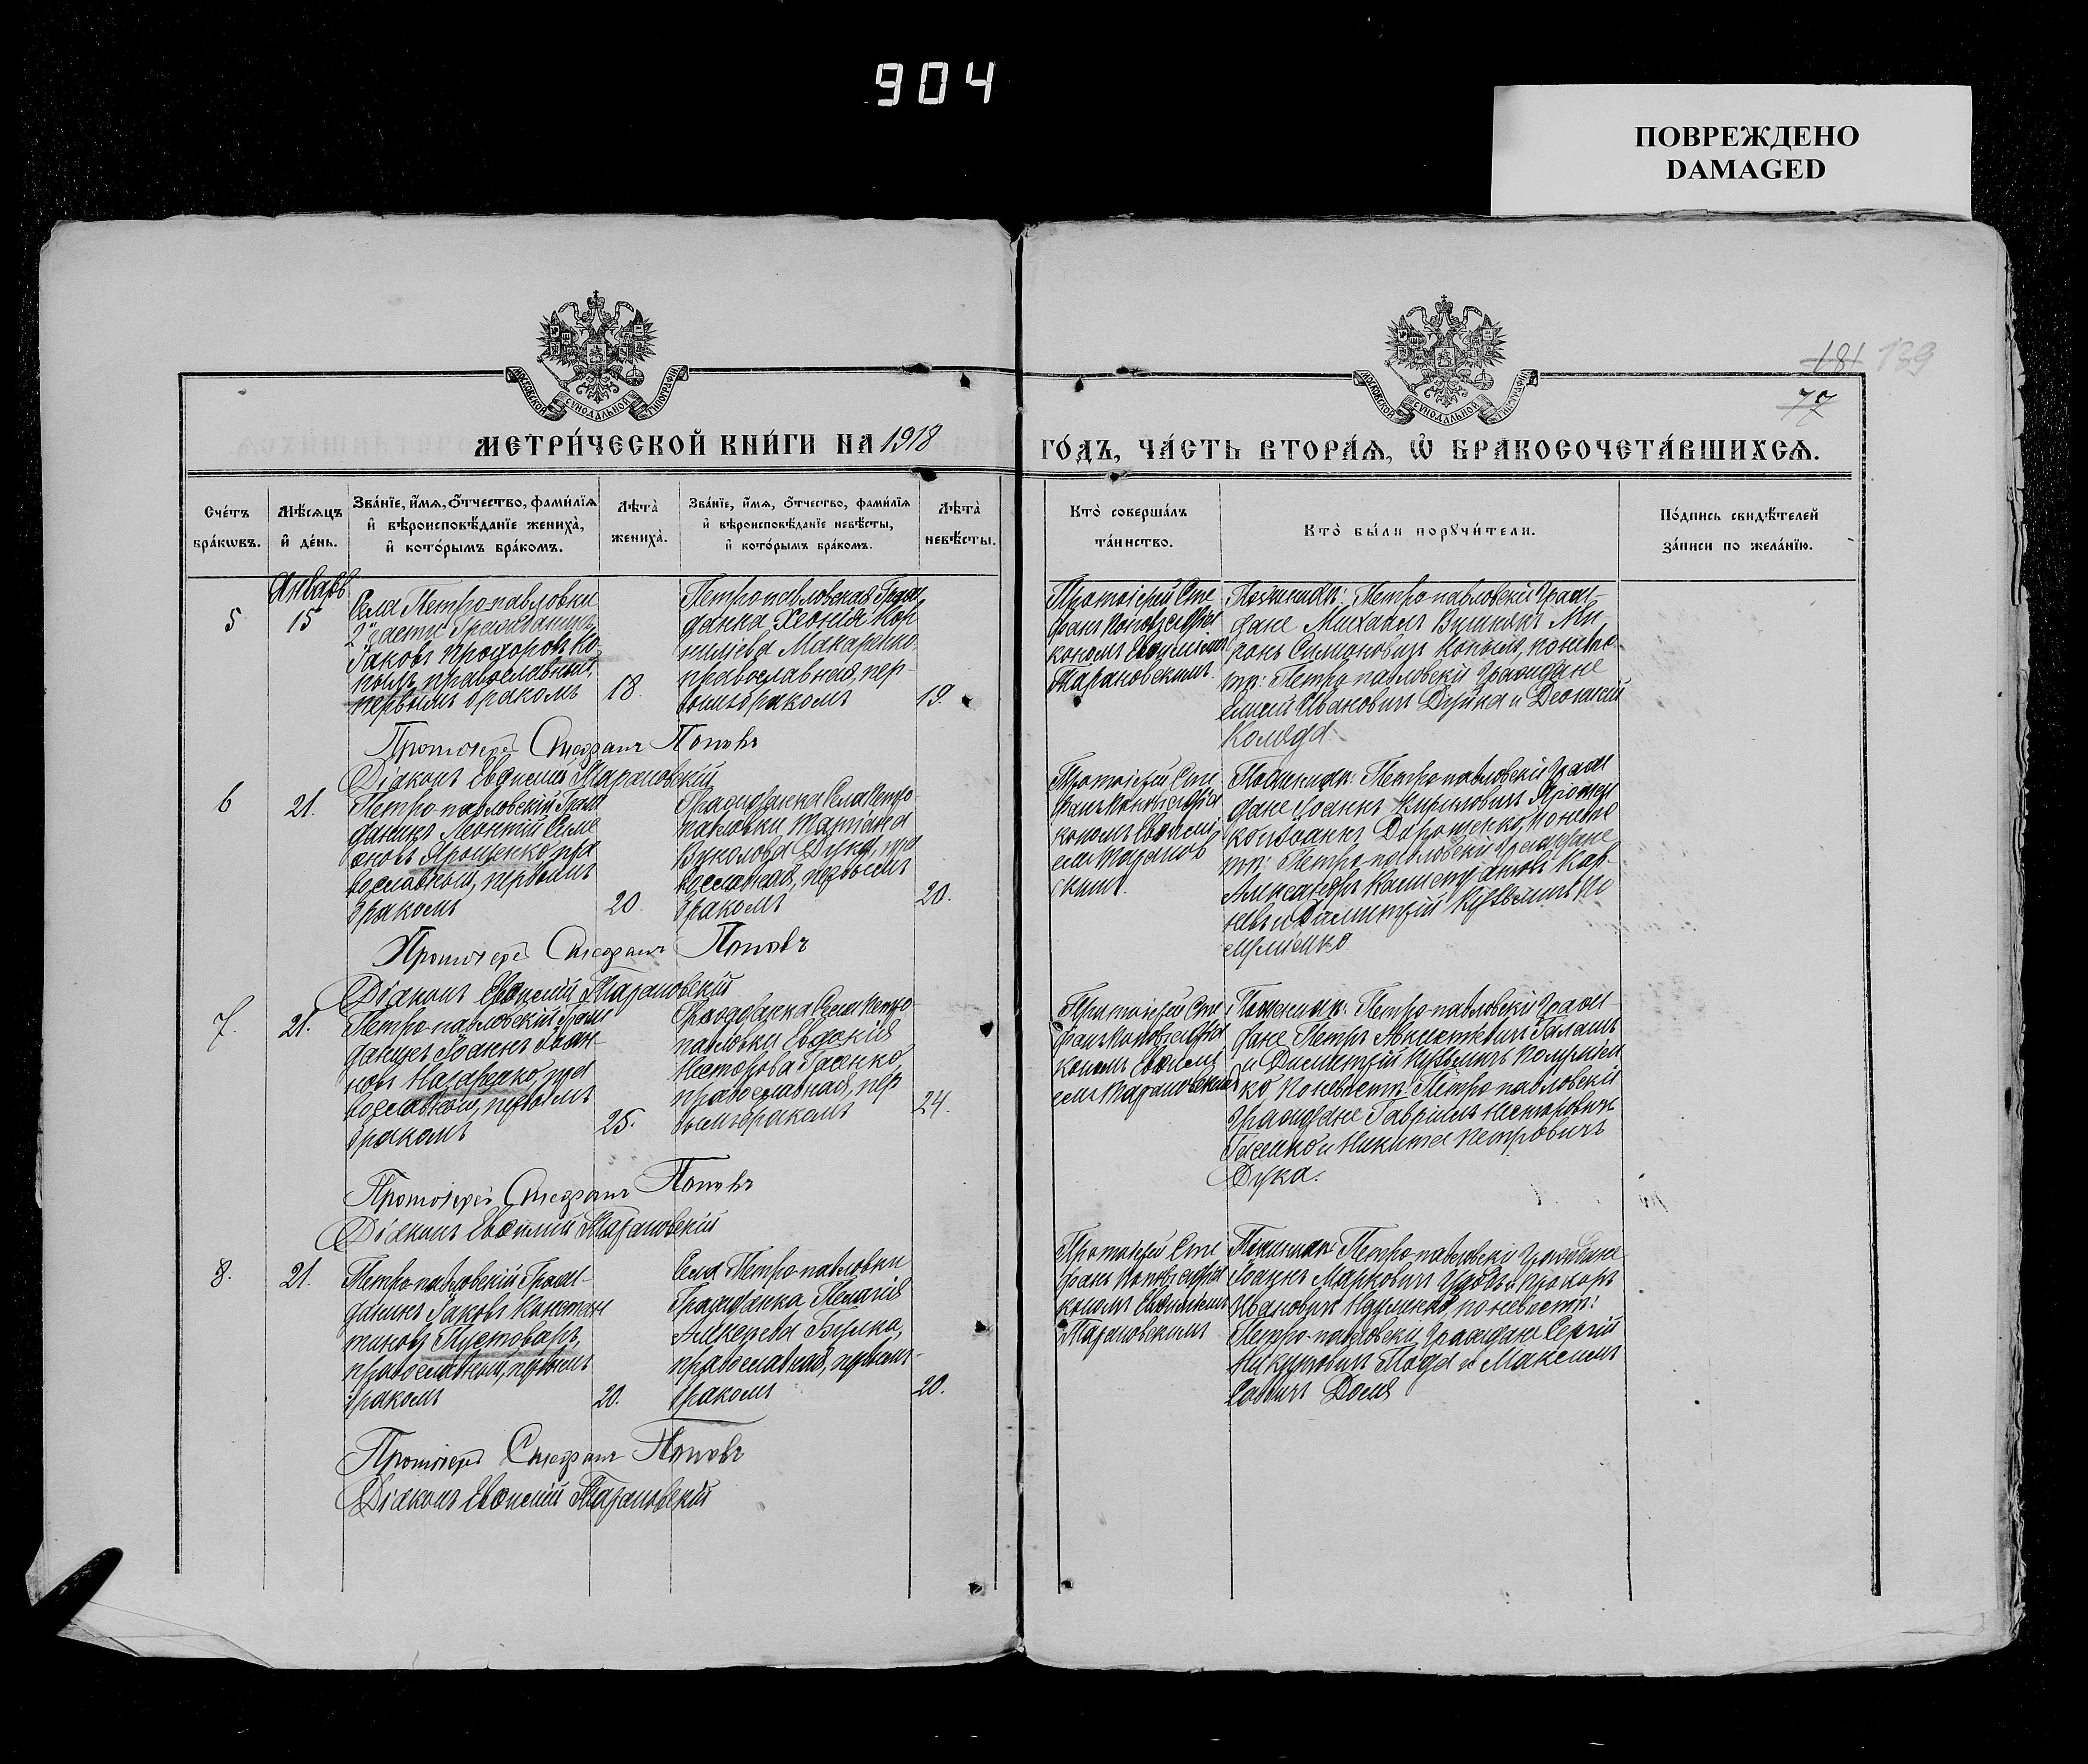 904
ПОВРЕЖДЕНО
DAMAGED
МОСКОВСКОЙ СѴНОДАЛЬНОЙ ТИПОГРАФІИ
МОСКОВСКОЙ СѴНОДАЛЬНОЙ ТИПОГРАФІИ
181 139
77
МЕТРИ́ЧЕСКОЙ КНИ́ГИ НА 1918
ГО́ДЪ, ЧА́СТЬ ВТОРА́Ѧ, Ѽ БРАКОСОЧЕТА́ВШИХСѦ.
Сче́тъ бра́кѡвъ.
Мѣ́сѧцъ и҆ де́нь.
Зва́нїе, и҆́мѧ, ѻ҆́тчество, фами́лїѧ
и҆ вѣроисповѣ́данїе жениха̀,
и҆ кото́рымъ бра́комъ.
Лѣта̀ жениха̀.
Зва́нїе, и҆́мѧ, ѻ҆́тчество, фами́лїѧ
и҆ вѣроисповѣ́данїе невѣ́сты,
и҆ кото́рымъ бра́комъ.
Лѣта̀ невѣ́сты.
Кто̀ соверша́лъ
та́инство.
Кто̀ бы́ли порꙋчи́тели.
По́дпись свидѣ́телей
за́писи по жела́нїю.
Январь
5
15
Села Петропавловки
2й части Гражданинъ
Іаковъ Прохоровъ Ко
пылъ, православный,
первымъ бракомъ
18.
Петропавловская Граж
данка Хіонія Кор
ниліева Макаренко
православная, пер-
вымъ бракомъ
19.
Протоіерей Сте
фанъ Поповъ съ Діа
кономъ Евѳиміемъ
Тарановскимъ.
По женихѣ: Петропавловскій Граж-
дане Михаилъ
Симоновичъ Копылъ, по невѣс
тѣ: Петропавловскій Граждане
Ивановичъ Дуйка и
Коляда
Протоіерей Стефанъ Поповъ
Діаконъ Евѳимій Тарановскій
6
21.
Петропавловскій Граж
данинъ Леонтій Симе
оновъ Ярошенко, пра
вославный, первымъ
бракомъ
20
Гражданка Села Петро-
павловки
Вуколова Дука, пра
вославная, первымъ
бракомъ
20.
Протоіерей Сте
фанъ Поповъ съ Діа
кономъ Евѳимі
емъ Таранов
скимъ.
По женихѣ: Петропавловскій Граж
дане Іоаннъ Кирилловичъ
Іоаннъ Дорошенко, по невѣс
тѣ: Петропавловскій Граждане
Александръ
и Димитрій Кузьмичъ
Протоіерей Стефанъ Поповъ
Діаконъ Евѳимій Тарановскій
7.
21.
Петропавловскій Граж
данинъ Іоаннъ Іоан-
новъ Назаренко, пра
вославный, первымъ
бракомъ
25.
Гражданка Села Петро
павловки Евдокія
Несторова Гасенко,
православная, пер
вымъ бракомъ
24.
Протоіерей Сте
фанъ Поповъ съ Діа
кономъ Евѳимі
емъ Тарановскимъ
По женихѣ: Петропавловскій Граж-
дане Петръ
и Димитрій Кузьмичъ
по невѣстѣ: Петропавловскій
Граждане Гавріилъ Несторовичъ
Гасенко и Никита Петровичъ
Дука.
Протоіерей Стефанъ Поповъ
Діаконъ Евѳимій Тарановскій
8.
21.
Петропавловскій Граж-
данинъ Іаковъ Констан
тиновъ Пустоваръ,
православный, первымъ
бракомъ
20.
Села Петропавловки
Гражданка Пелагія
Алексѣева Бузко,
православная, первымъ
бракомъ
20.
Протоіерей Сте
фанъ Поповъ съ Діа
кономъ Евѳиміемъ
Тарановскимъ
По женихѣ: Петропавловскій Граждане
Іоаннъ Марковичъ Удодъ и Прохоръ
Ивановичъ Науменко, по невѣстѣ:
Петропавловскій Граждане Сергій
и Максимъ
Саввичъ Доля
Протоіерей Стефанъ Поповъ
Діаконъ Евѳимій Тарановскій